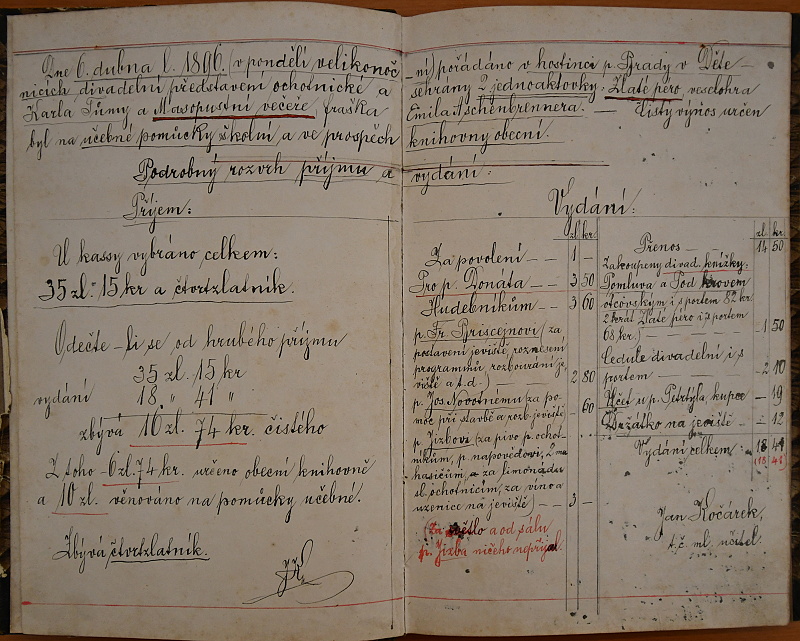 Dne 6. dubna l. 1896. (v pondělí velikonoč-
ních divadelní představení ochotnické a
Karla Tůmy a Masopustní večeře, fraška
byl na učebné pomůcky školní a ve prospěch
Podrobný rozvrh příjmu a
Příjem:
U kassy vybráno celkem:
35 zl. 15 kr a čtvrtzlatník.
Odečte-li se od hrubého příjmu
35 zl. 15 kr
vydání 18 " 41 "
zbývá 16 zl. 74 kr. čistého
Z toho 6 zl. 74 kr. určeno obecní knihovně
a 10 zl. věnováno na pomůcky učebné.
Zbývá čtvrtzlatník.
ní) pořádáno v hostinci p. v Děte-
sehrány 2 jednoaktovky: Zlaté péro, veselohra
Emila Aschenbrennera. — Čistý výnos určen
knihovny obecní.
vydání:
Vydání:
zl. kr.
Za povolení — — 1 —
Pro p. Donáta — — 3 50
Hudebníkům — — 3 60
p. Fr. (za
postavení jeviště, roznesení
programmů, rozbourání je-
viště a t.d.) — 2 80
p. Jos. Novotnému za po-
moc při stavbě a rozb. jeviště — 60
p. Jizbovi (za pivo p. ochot-
níkům, p. napovědovi, 2 mu
hasičům, a za limonádu
sl. ochotnicím, za víno a
uzenice na jeviště) — — 3 —
(Za světlo a od sálu
p. Jizba ničeho nepřijal.
zl. kr.
Přenos — 14 50
Zakoupeny divad. knížky:
Pomluva a Pod krovem
otcovským i s portem 82 kr.
2krát Zlaté péro i s portem
68 kr.) — 1 50
Cedule divadelní i s
portem — — 2 10
Účet u p. Petrtýla, kupce — — 19
Držátko na jeviště — — 12
Vydání celkem: 18 41
(18 41)
Jan Kočárek,
t. č. ml. učitel.